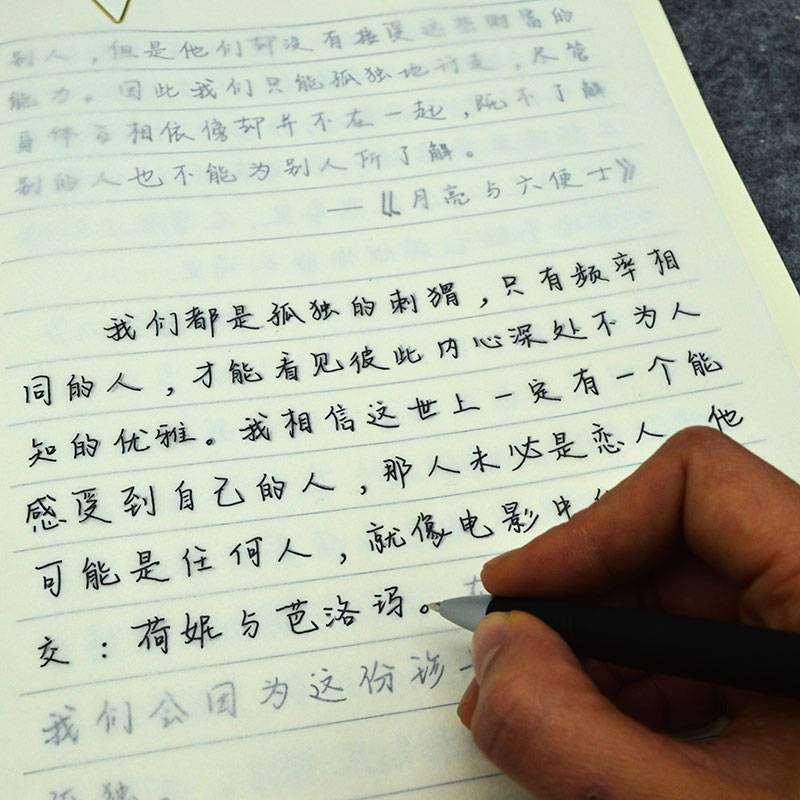 别人，但是他们却没有接受这些财富的
能力。因此我们只能孤独地行走，尽管
身体互相依傍却并不在一起，既不了解
别的人也不能为别人所了解。
—《月亮与六便士》
我们都是孤独的刺猬，只有频率相
同的人，才能看见彼此内心深处不为人
知的优雅。我相信这世上一定有一个能
感受到自己的人，那人未必是恋人，他
可能是任何人，就像电影中
交：荷妮与芭洛玛。
我们会因为这份珍
孤独。